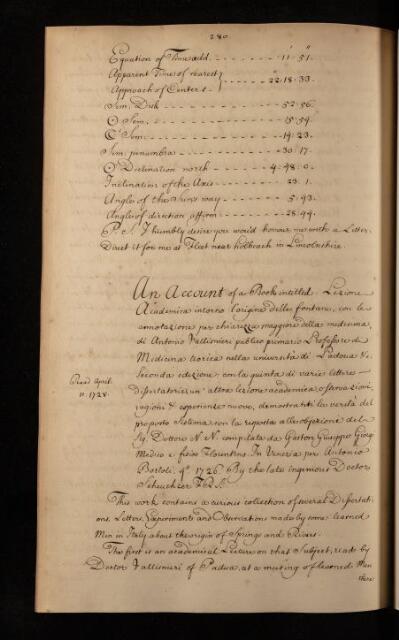 280
Equation of Time add - - - - - - - 11 . 51 .
Apparent Time of nearest } - - - - 22 . 18 . 33 .
Approach of Centers -
Sem. Disk - - - - - - - - - - 52 . 56 .
☉ Sem. - - - - - - - - - - - 15 . 54 .
☾ Sem. - - - - - - - - - - - 14 . 23 .
Sem. penumbra - - - - - - - - 30 . 17 .
☉ Declination north - - - - - 4 . 48 . 0 .
Inclination of the Axis - - - - - 23 . 1 .
Angle of the Sun's way - - - - - 5 . 43 .
Angle of direction affirm - - - - - 28 . 44 .
P. S. I humbly desire you would honour me with a Letter.
Direct it for me at Fleet near Holbeach in Lincolnshire.
An Account of a Book intitled. Lezione
Academica intorno l'origine delle fontane, con le
annotazione per chiarezza maggiore della medesima,
di Antonio Vallisnieri publico primario Professore di
Medicina teorica nella università di Padoua &c.
Seconda edizione con la giunta di varie lettere
Read April
11. 1728.
dissertatories un' altra lezione academica, osservazioni,
ragioni & esperienze nuove, demostranti la verità del
proposto sistema, con la risposta alle obiezione del
Sig. Dottore N N compilata da Gaston Giuseppe Giorgi
Medico e fisico Florentino. In Venezia per Antonio
Bortoli, 4° 1726. By the late ingenious Doctor
Scheuchzer F R S.
This work contains a curious collection of several Dissertati-
ons, Letters, Experiments and Observations made by some learned
Men in Italy about the origin of Springs and Rivers.
The first is an academical Lecture on that Subject, read by
Doctor Vallisnieri of Padua, at a meeting of learned Men
there